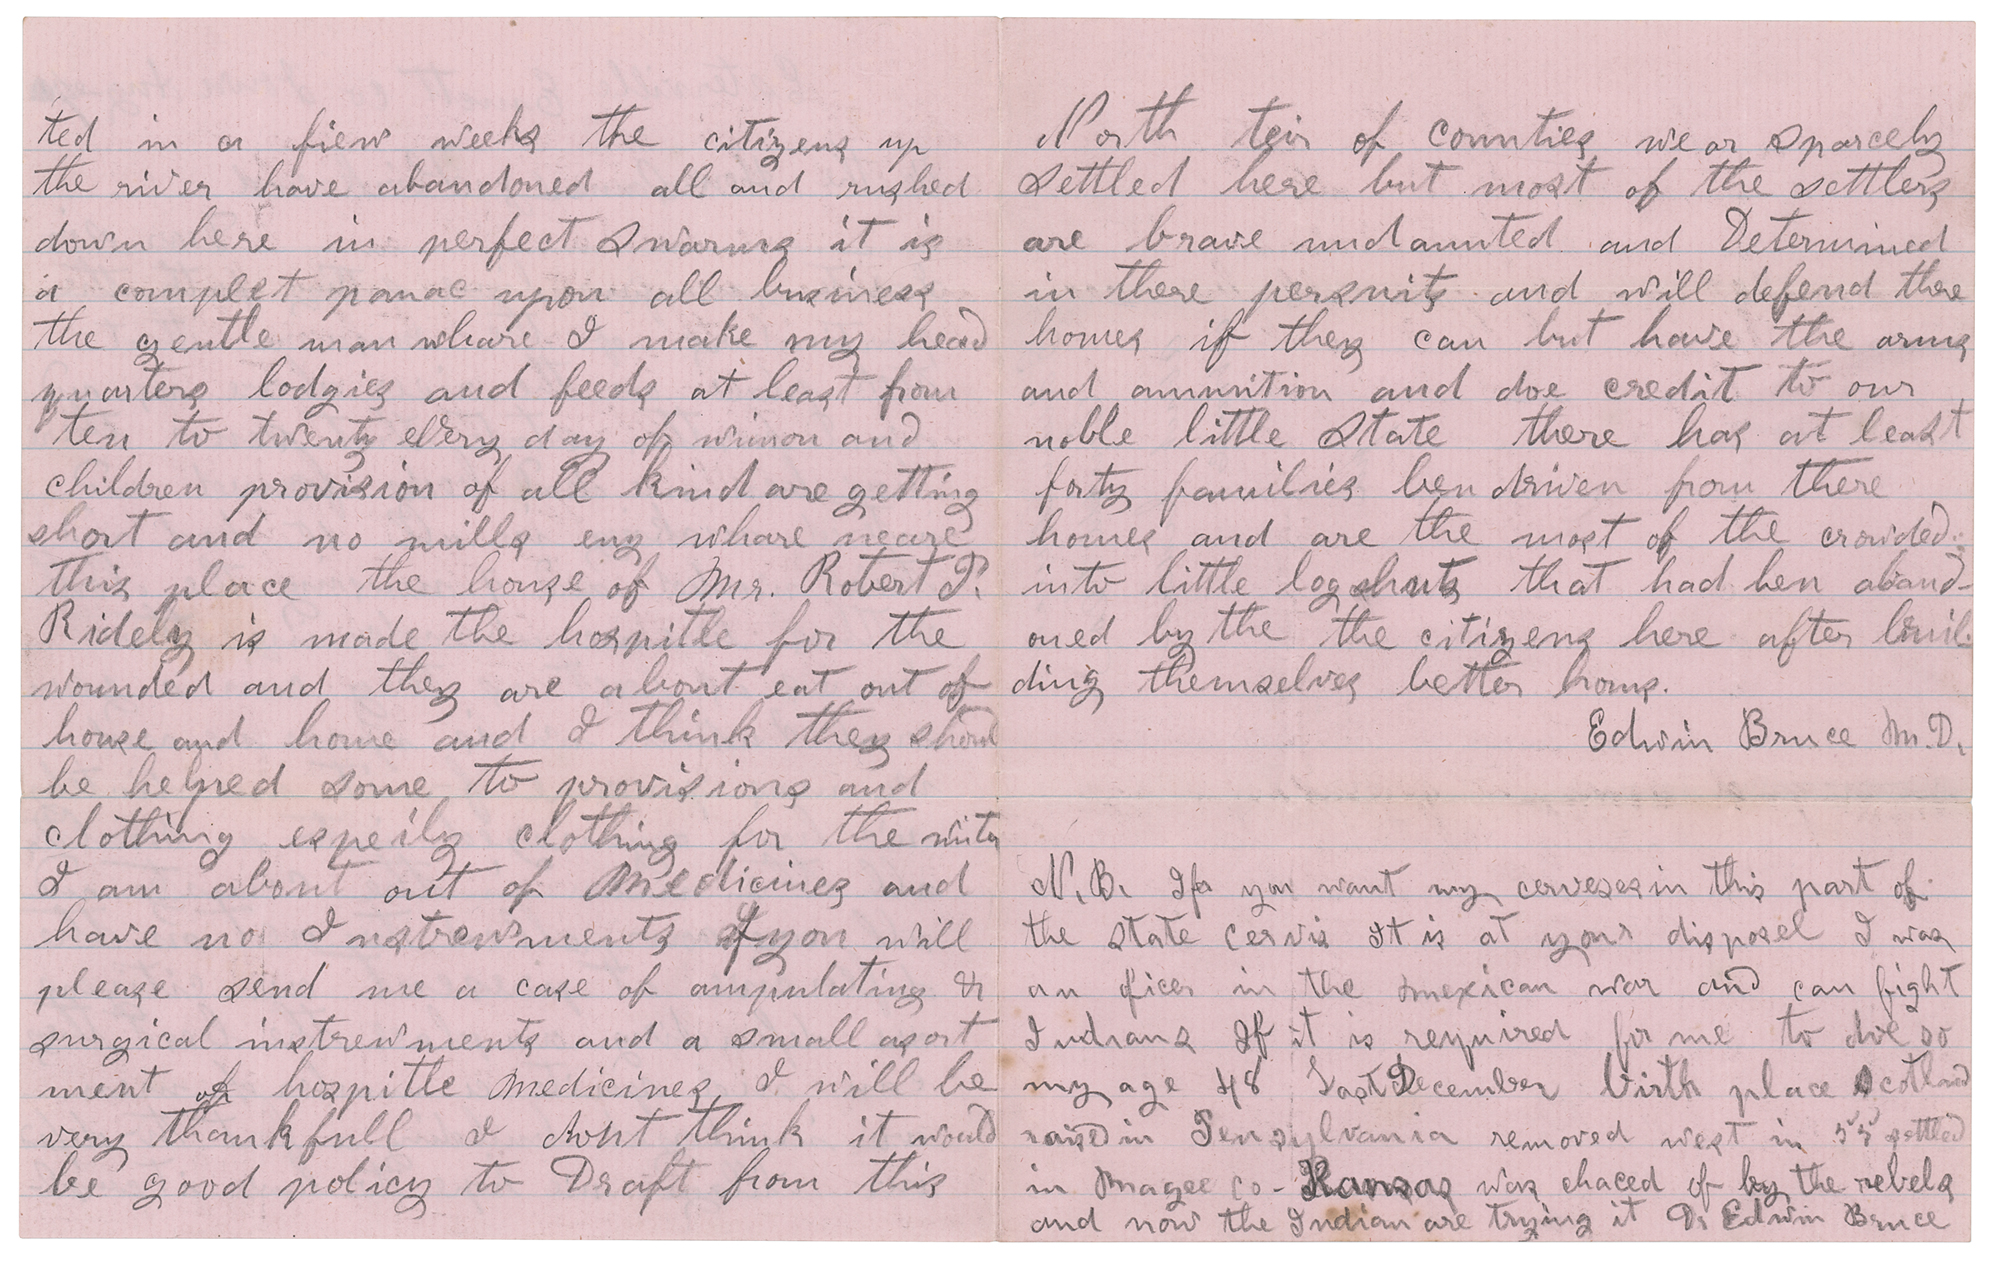 ted in a fiew weeks the citizens up
the river have abandoned all and rushed
down here in perfect swarms it is
a complet panac upon all business
the gentle man whare I make my head
quarters lodgies and feeds at least from
ten to twenty every day of wimon and
children provision of all kind are getting
short and no mills eny whare neare
this place the house of Mr. Robert P.
Ridely is made the hospitle for the
wounded and they are about eat out of
house and home and I think they shoud
be helped some to provisions and
clothing espeily clothing for the
I am about out of Medicines and
have no Instrewments If you will
please send me a case of ampulating &
surgical instrewments and a small asort
ment of hospitle Medicines I will be
very thankfull I dont think it would
be good policy to Draft from this
North teir of counties we ar sparcely
settled here but most of the settlers
are brave undaunted and Determined
in there persuits and will defend there
homes if they can but have the arms
and amunition and doe credit to our
noble little state there has at least
forty families ben driven from there
homes and are the most of the crowded
into little log shuts that had ben aband-
oned by the the citizens here after buil-
ding themselves better homs.
Edwin Bruce M.D.
N.B. If you want my cerveses in this part of
the state cervis It is at your disposel I was
an oficer in the mexican war and can fight
Indians If it is required for me to doe so
my age 48 last December birth place Scotland
raised in Pensylvania removed west in 55 settled
in Magee co- Kansas was chaced of by the rebels
and now the Indian are trying it Dr Edwin Bruce